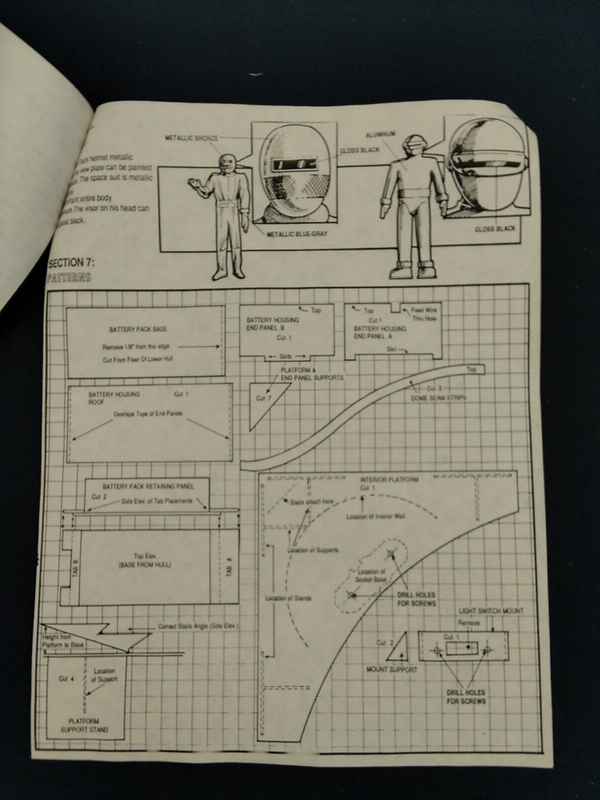 METALLIC BRONZE
ALUMINUM
GLOSS BLACK
helmet metallic
plate can be painted
The space suit is metallic
entire body
The visor on his head can
black.
METALLIC BLUE-GRAY
GLOSS BLACK
SECTION 7:
PATTERNS
BATTERY PACK BASE
Remove 1/8" from this edge
Cut From Floor Of Lower Hull
Top
BATTERY HOUSING
END PANEL B
Cut 1
Slots
Top
Cut 1
Feed Wire
Thru Hole
BATTERY HOUSING
END PANEL A
Slot
PLATFORM &
END PANEL SUPPORTS
Cut 7
Top
Cut 2
DOME SEAM STRIPS
BATTERY HOUSING
ROOF
Cut 1
Overlaps Tops of End Panels
BATTERY PACK RETAINING PANEL
Cut 2
Side Elev. of Tab Placements
TAB B
Top Elev.
(BASE FROM HULL)
TAB A
INTERIOR PLATFORM
Cut 1
Stairs attach here
Location of Interior Wall
Location of Supports
Location of
Socket Base
Location of Stands
DRILL HOLES
FOR SCREWS
Correct Stairs Angle (Side Elev.)
Height from
Platform to Base
Cut 4
Location
of Support
PLATFORM
SUPPORT STAND
LIGHT SWITCH MOUNT
Remove
Cut 1
Cut 2
MOUNT SUPPORT
DRILL HOLES
FOR SCREWS